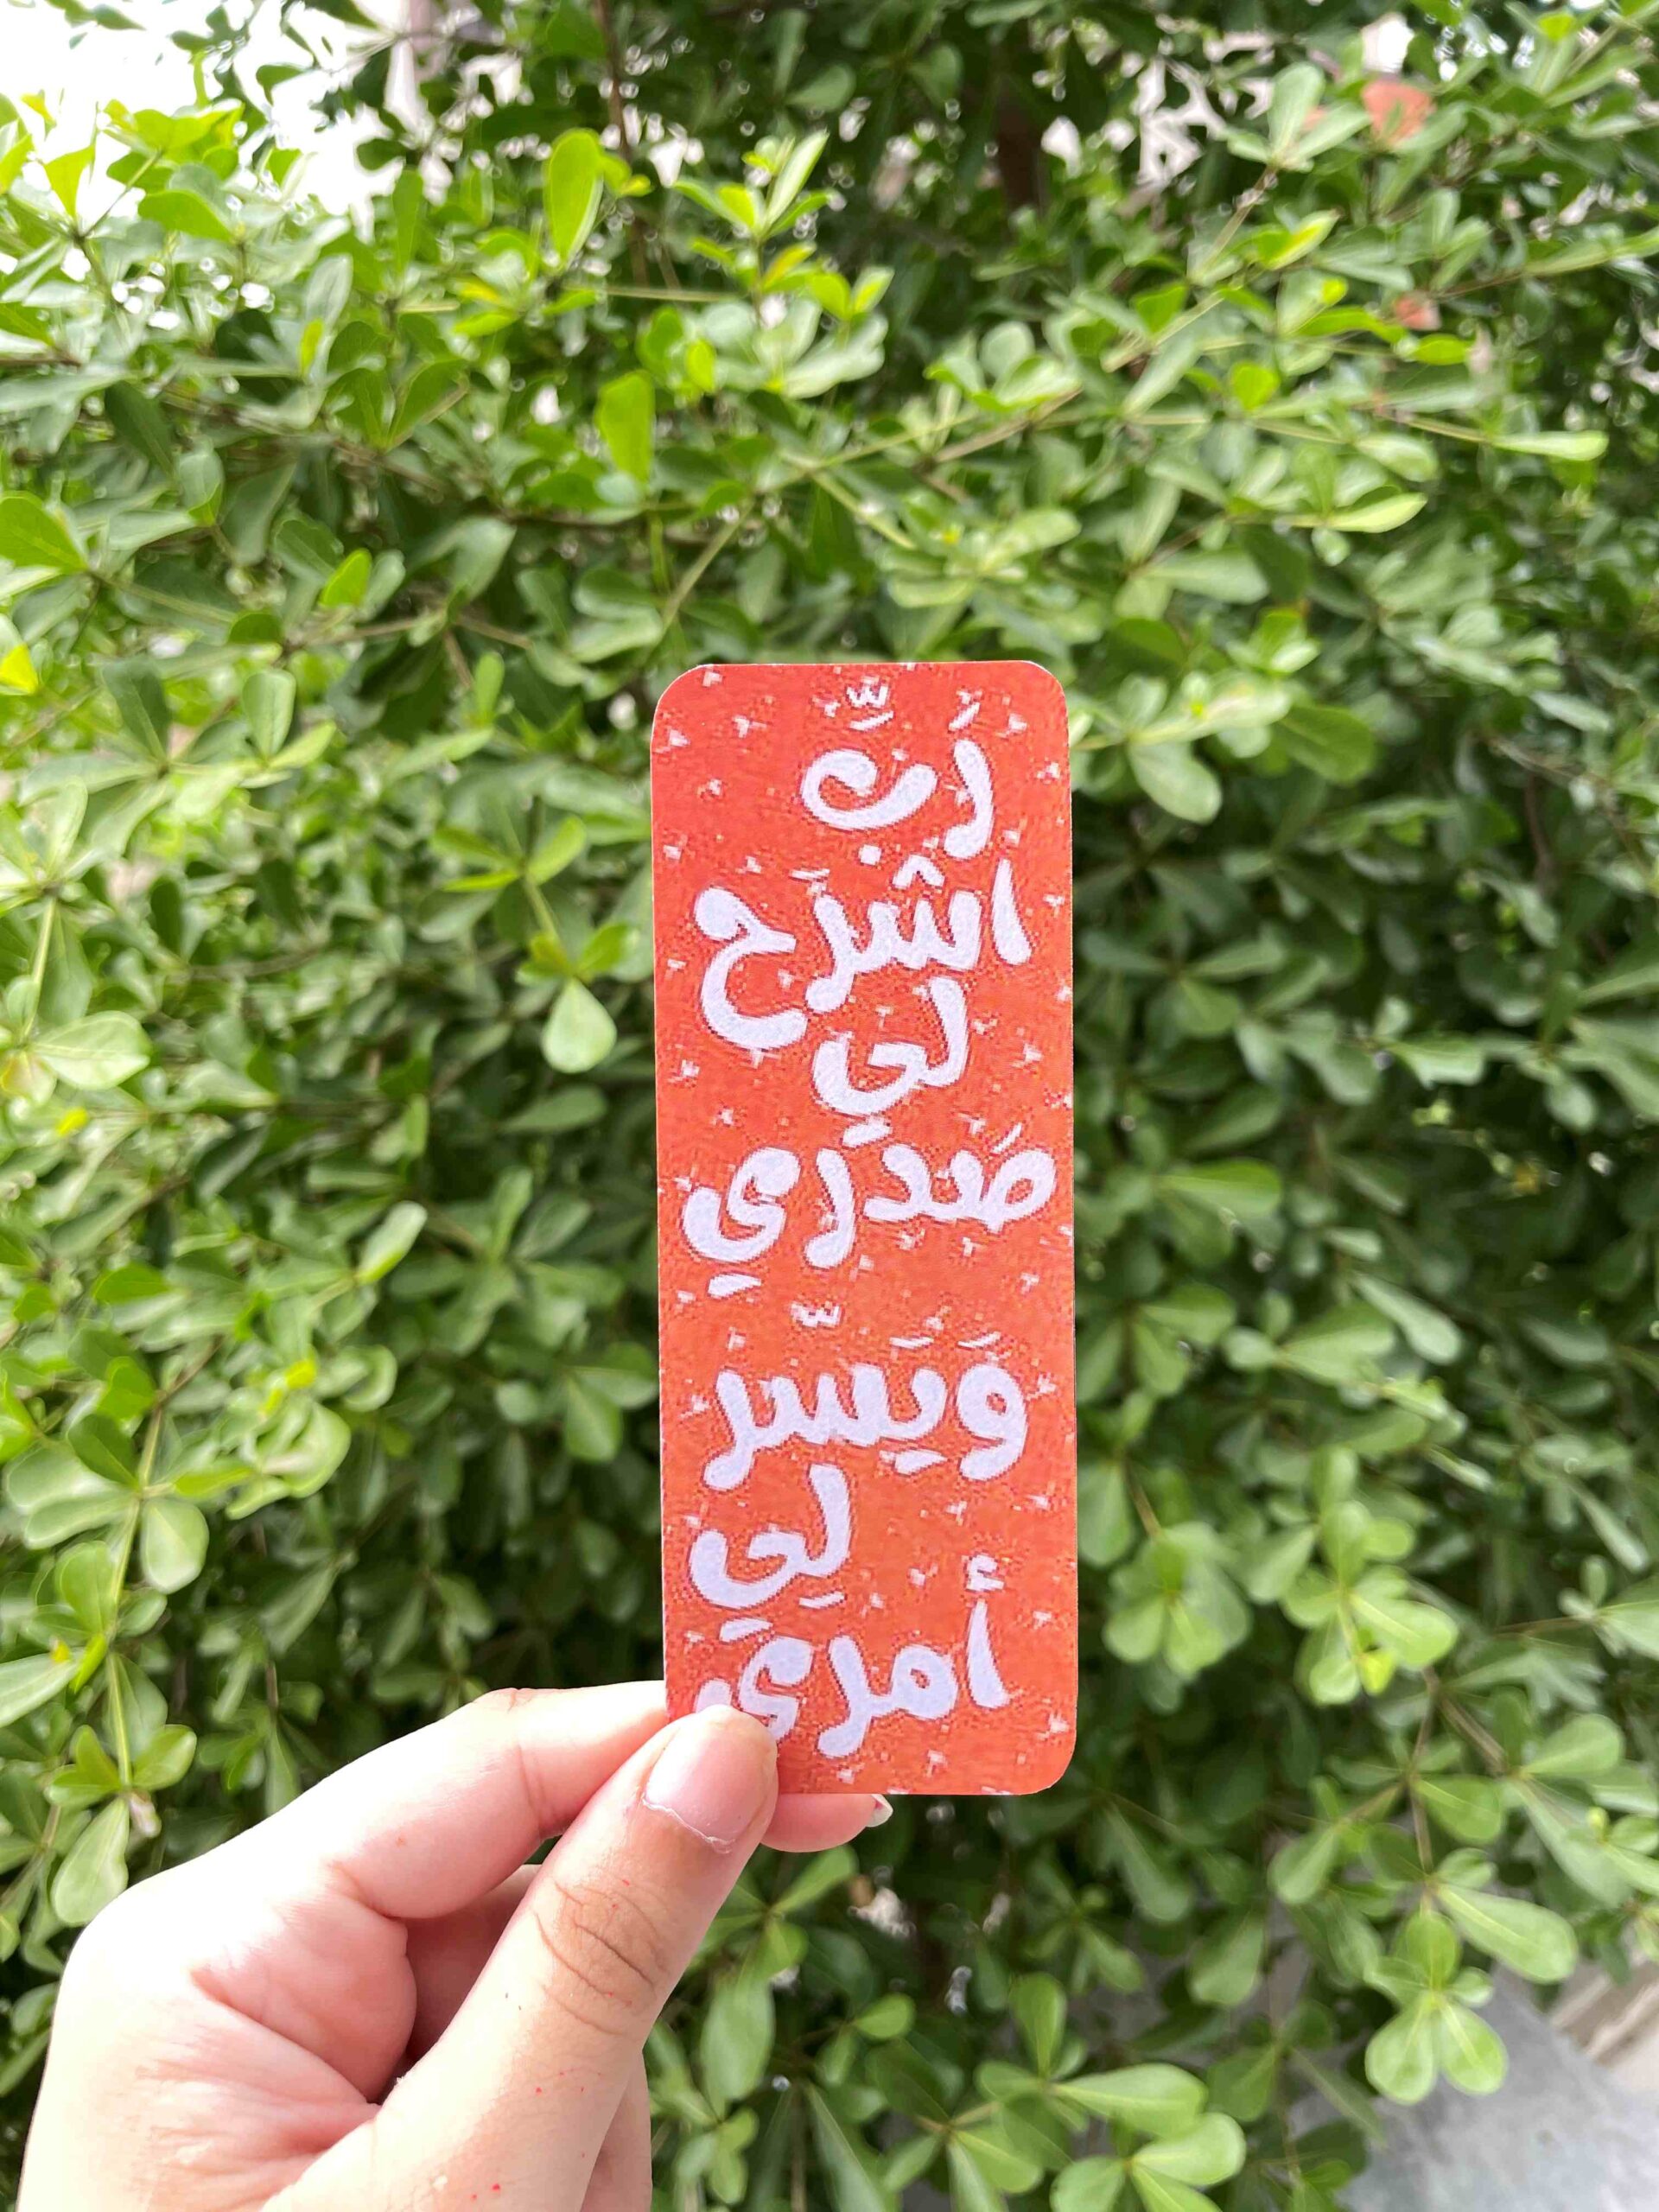 رَبِّ
اشْرَح
لِي
صَدرِي
وَيَسّر
لِي
أمرِي